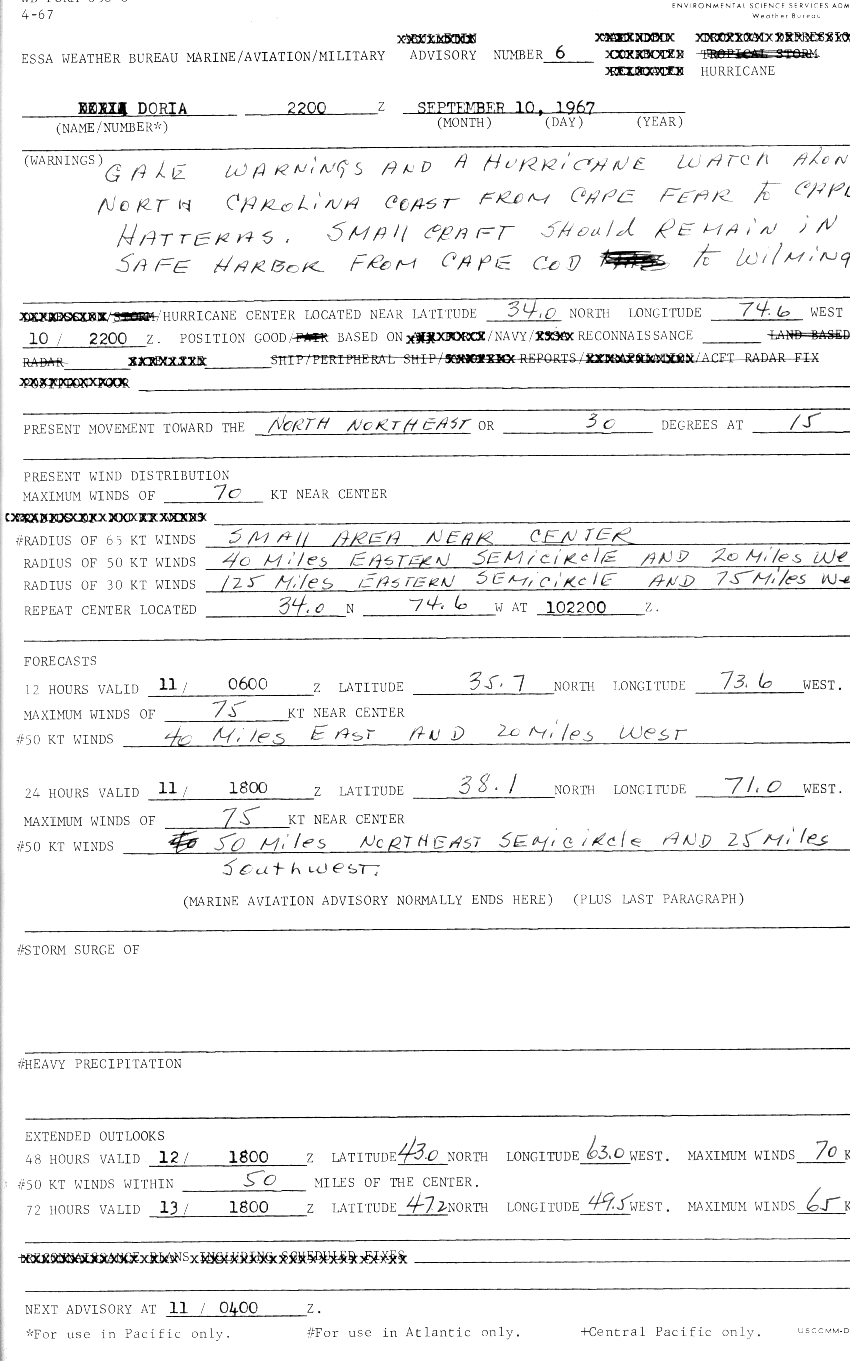 4-67
ENVIRONMENTAL SCIENCE SERVICES ADM
Weather Bureau
ESSA WEATHER BUREAU MARINE/AVIATION/MILITARY ADVISORY NUMBER 6 TROPICAL STORM
HURRICANE
DORIA 2200 Z SEPTEMBER 10, 1967
(NAME/NUMBER*) (MONTH) (DAY) (YEAR)
(WARNINGS) GALE WARNINGS AND A HURRICANE WATCH ALON
NORTH CAROLINA COAST FROM CAPE FEAR to CAPE
HATTERAS. SMALL CRAFT SHOULD REMAIN IN
SAFE HARBOR FROM CAPE COD to WILMING
/STORM/HURRICANE CENTER LOCATED NEAR LATITUDE 34.0 NORTH LONGITUDE 74.6 WEST
10 / 2200 Z. POSITION GOOD/FAIR BASED ON /NAVY/ RECONNAISSANCE LAND BASED
RADAR SHIP/PERIPHERAL SHIP/ REPORTS/ /ACFT RADAR FIX
PRESENT MOVEMENT TOWARD THE NORTH NORTHEAST OR 30 DEGREES AT 15
PRESENT WIND DISTRIBUTION
MAXIMUM WINDS OF 70 KT NEAR CENTER
#RADIUS OF 65 KT WINDS SMALL AREA NEAR CENTER
RADIUS OF 50 KT WINDS 40 MILES EASTERN SEMICIRCLE AND 20 MILES WE
RADIUS OF 30 KT WINDS 125 MILES EASTERN SEMICIRCLE AND 75 MILES WE
REPEAT CENTER LOCATED 34.0 N 74.6 W AT 102200 Z.
FORECASTS
12 HOURS VALID 11 / 0600 Z LATITUDE 35.7 NORTH LONGITUDE 73.6 WEST.
MAXIMUM WINDS OF 75 KT NEAR CENTER
#50 KT WINDS 40 MILES EAST AND 20 MILES WEST
24 HOURS VALID 11 / 1800 Z LATITUDE 38.1 NORTH LONGITUDE 71.0 WEST.
MAXIMUM WINDS OF 75 KT NEAR CENTER
#50 KT WINDS 50 MILES NORTHEAST SEMICIRCLE AND 25 MILES
SOUTHWEST.
(MARINE AVIATION ADVISORY NORMALLY ENDS HERE) (PLUS LAST PARAGRAPH)
#STORM SURGE OF
#HEAVY PRECIPITATION
EXTENDED OUTLOOKS
48 HOURS VALID 12 / 1800 Z LATITUDE 43.0 NORTH LONGITUDE 63.0 WEST. MAXIMUM WINDS 70 K
#50 KT WINDS WITHIN 50 MILES OF THE CENTER.
72 HOURS VALID 13 / 1800 Z LATITUDE 47.2 NORTH LONGITUDE 49.5 WEST. MAXIMUM WINDS 65 K
NEXT ADVISORY AT 11 / 0400 Z.
*For use in Pacific only. #For use in Atlantic only. +Central Pacific only. USCOMM-D